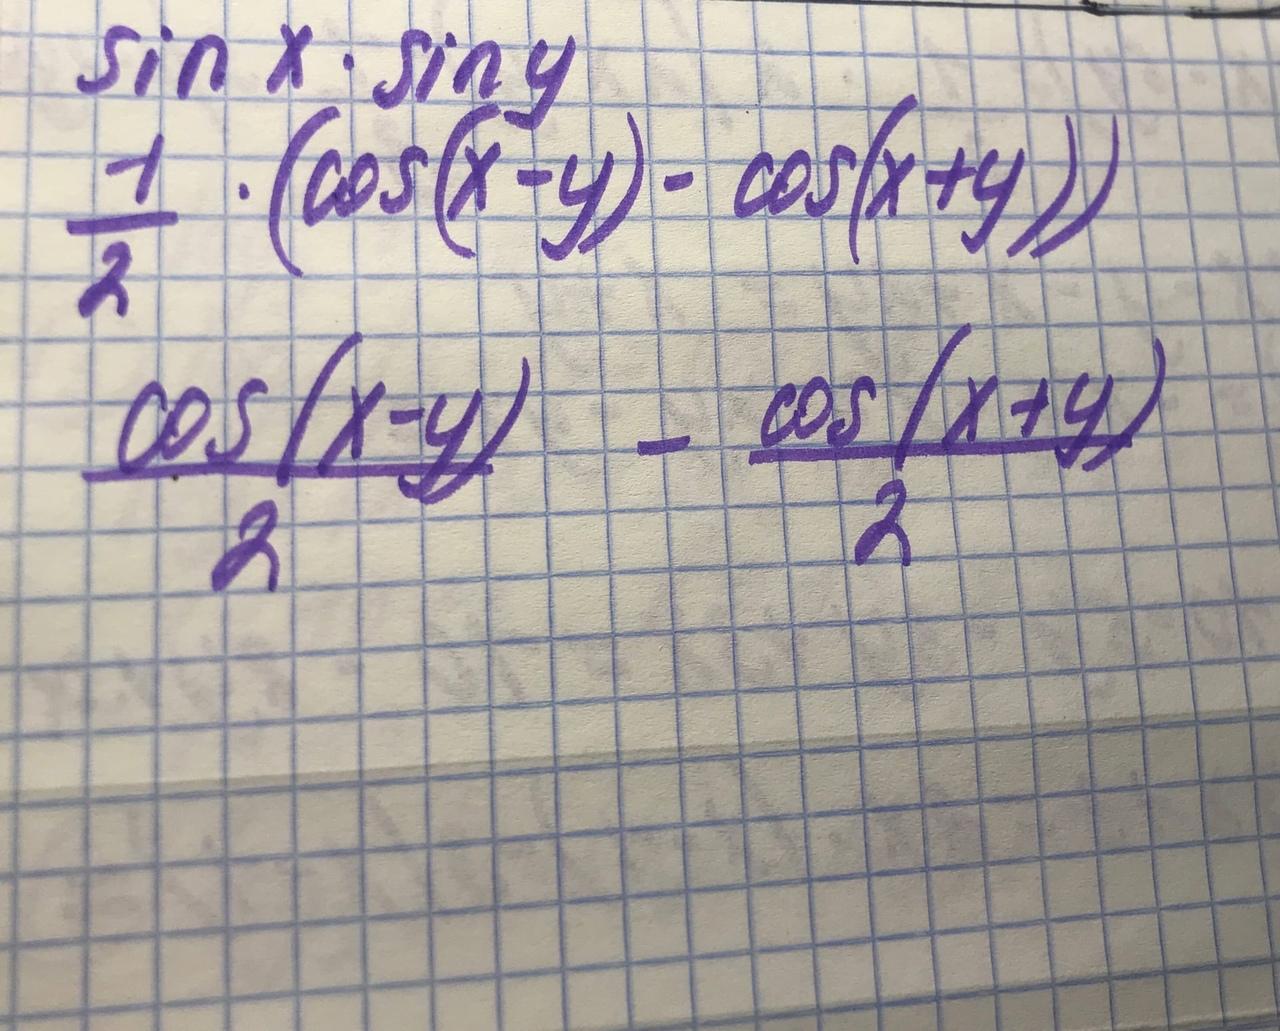 sin x · sin y
1/2 · (cos(x-y) - cos(x+y))
cos(x-y)/2 - cos(x+y)/2